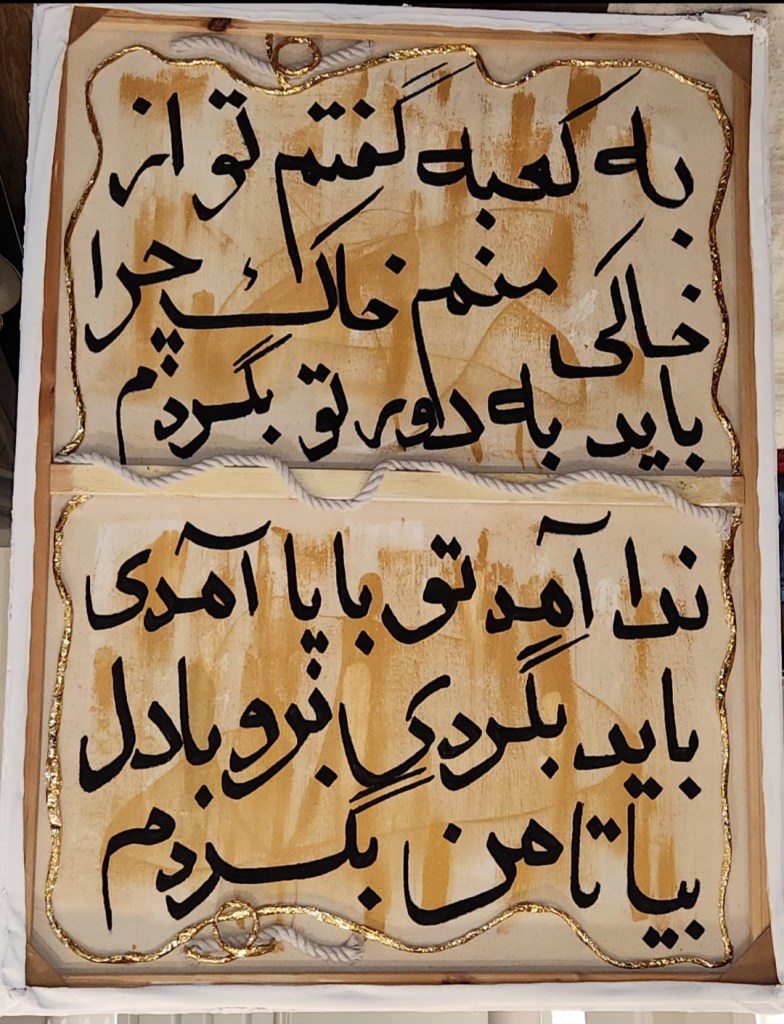 به کعبه گفتم تو از
خاکی منم خاک چرا
باید به دور تو بگردم
ندا آمد تو با پا آمدی
باید بگردی برو با دل
بیا تا من بگردم